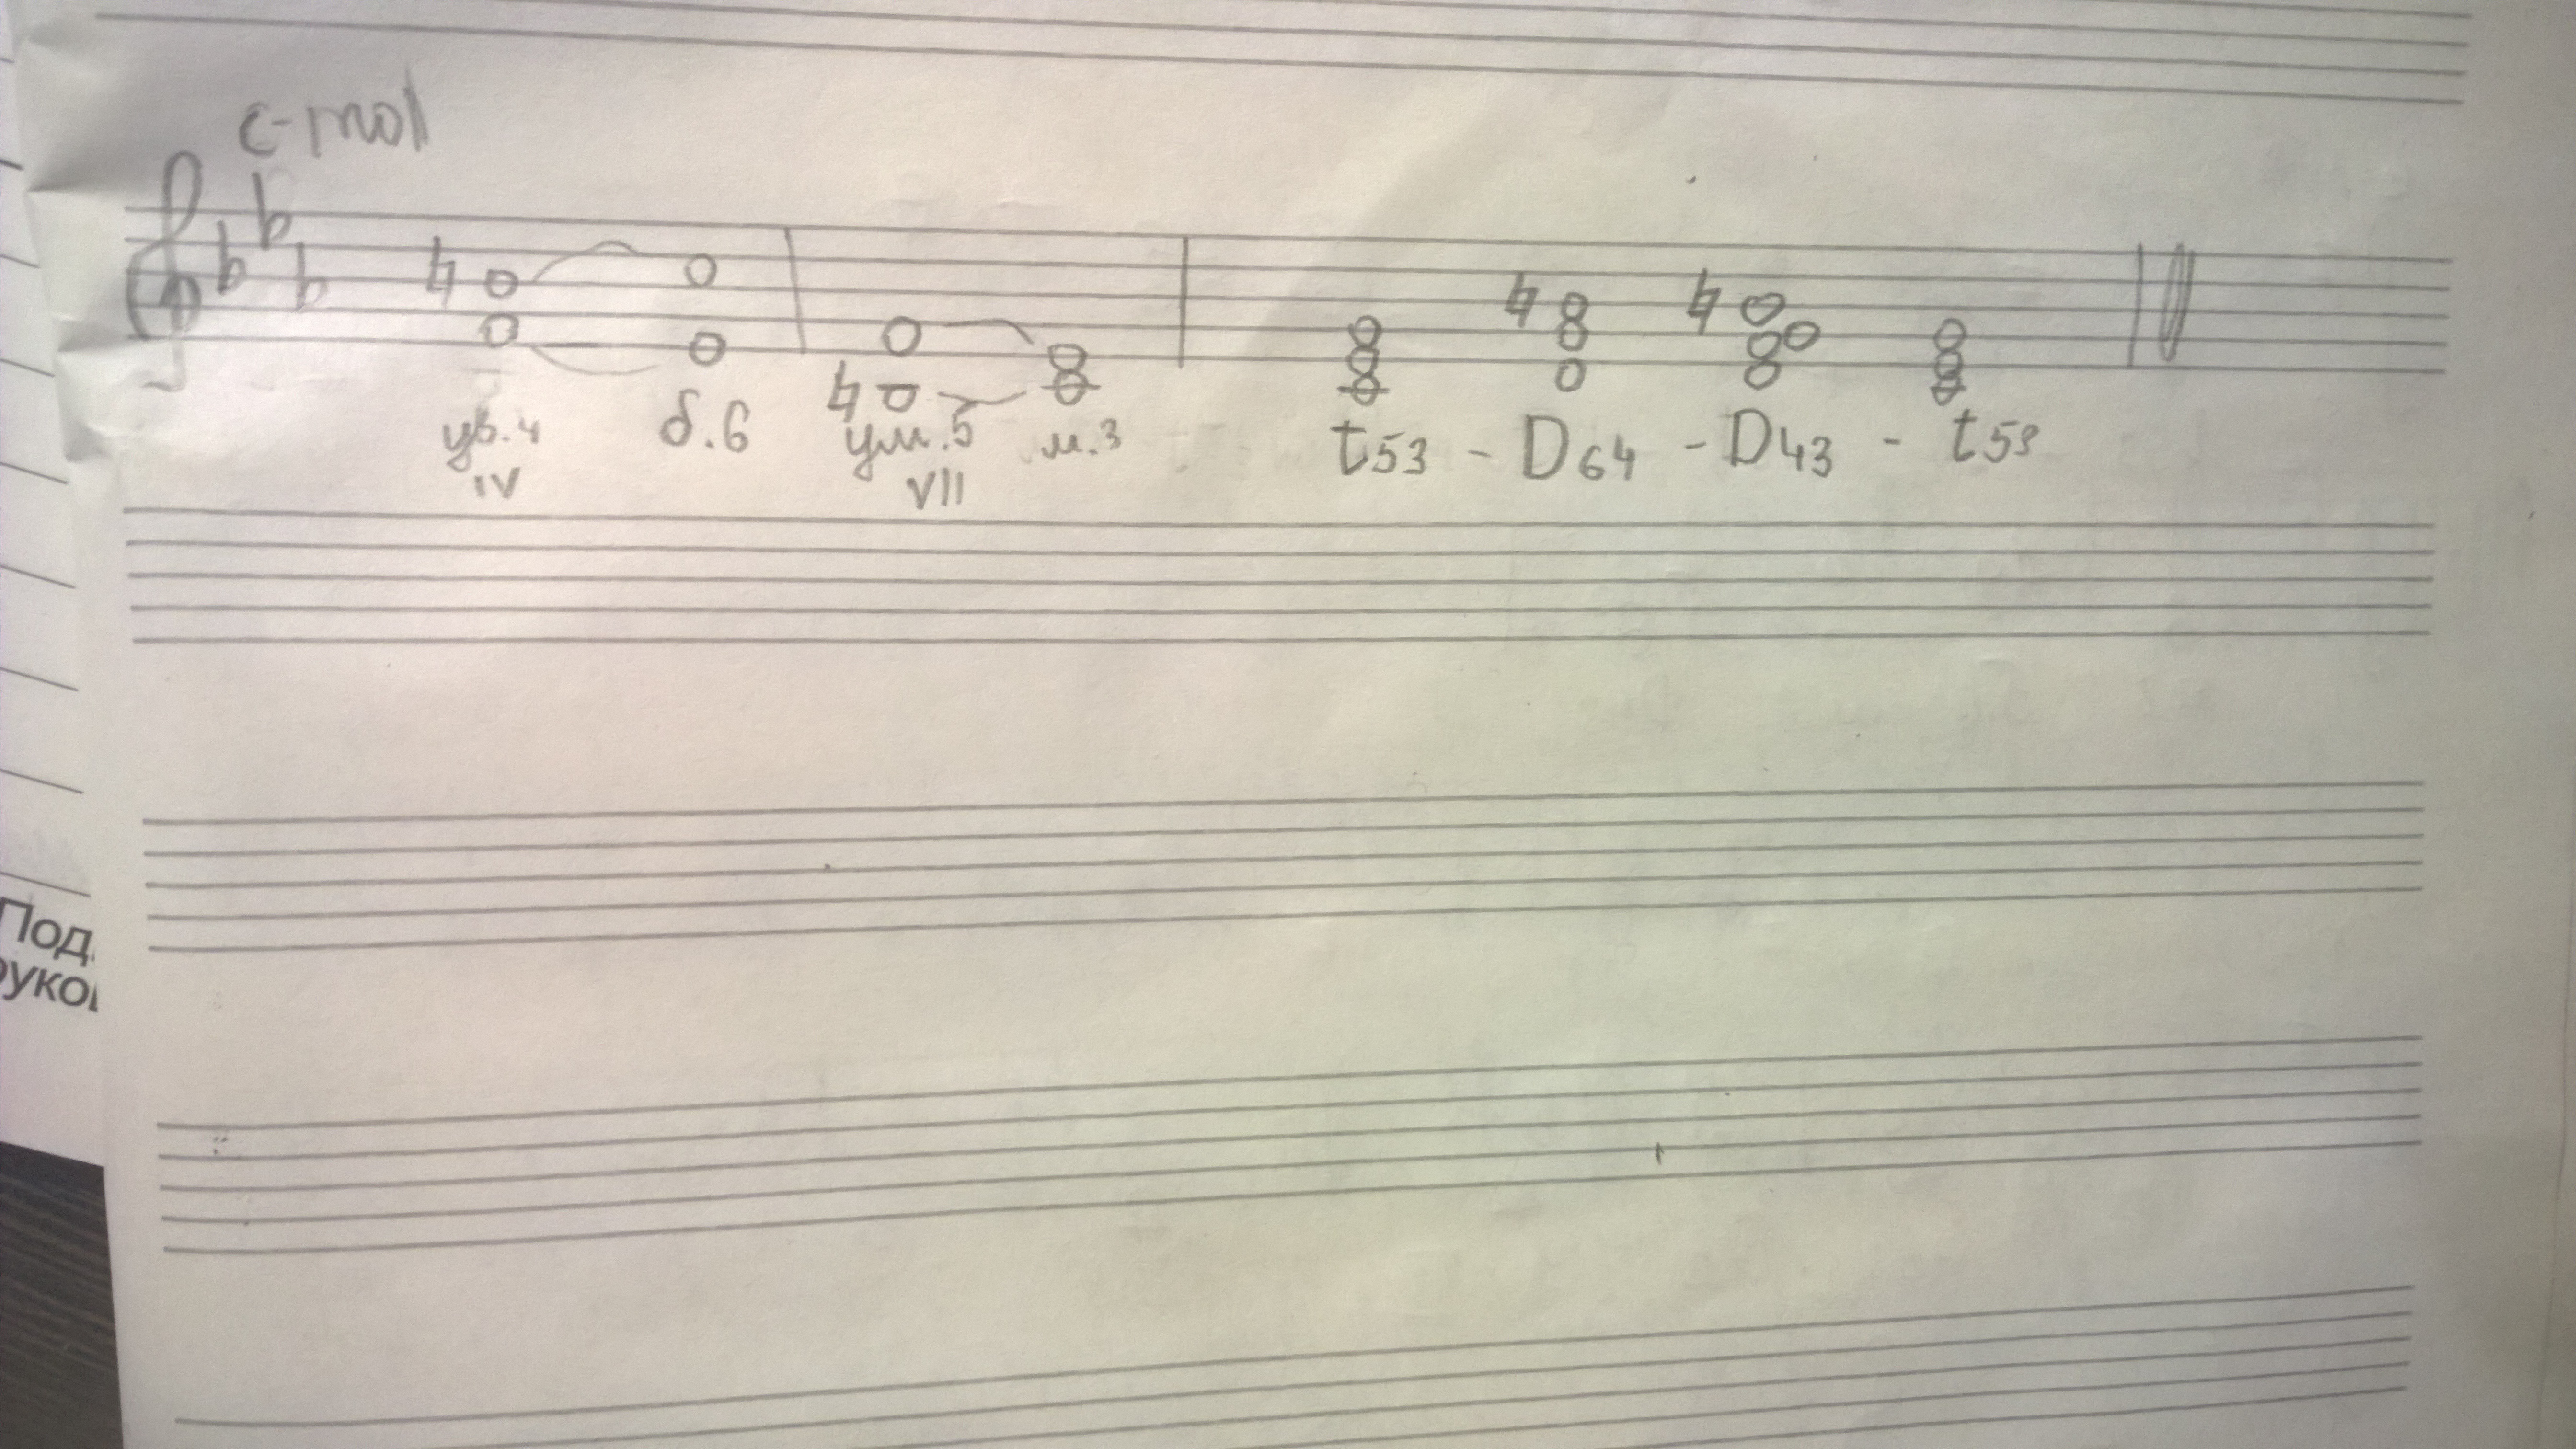 c-mol
ув.4 б.6 ум.5 м.3 t53 - D64 - D43 - t53
IV VII
Под
руко